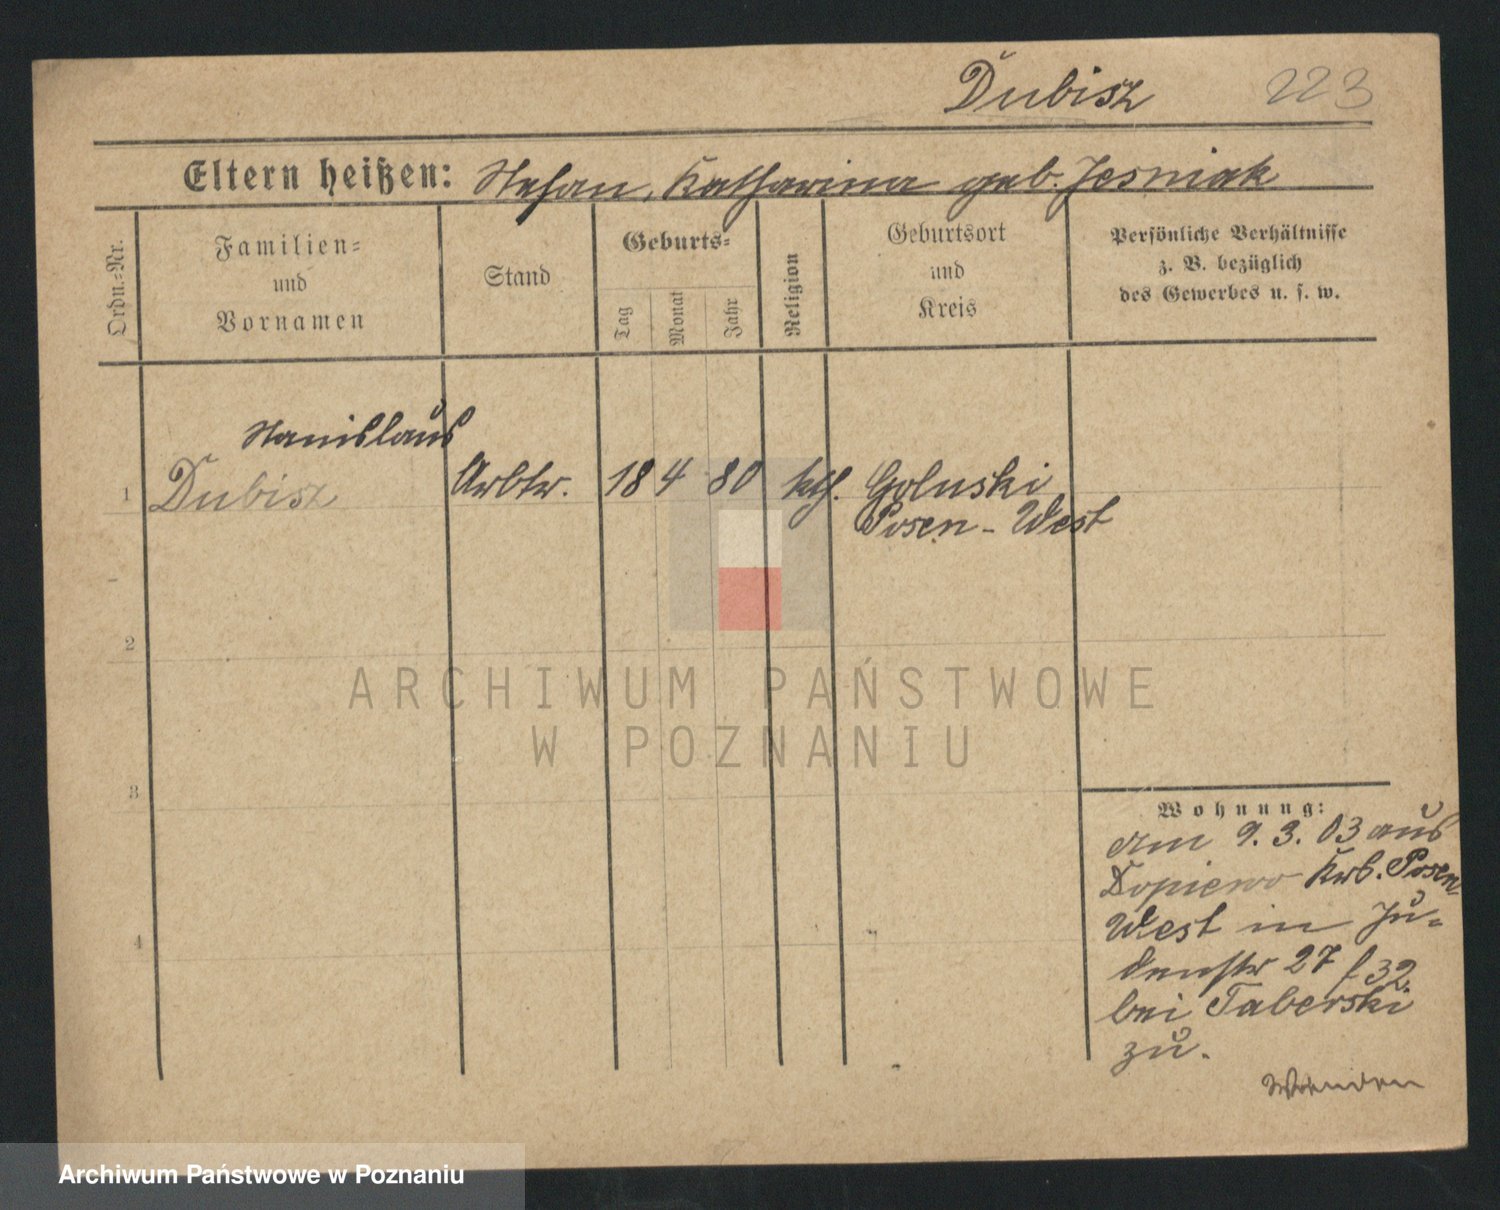 Dubisz 223
Eltern heißen: Stefan, Katharina geb. Jesniak
Ordn.-Nr.
Familien-
und
Vornamen
Stand
Geburts-
Tag
Monat
Jahr
Religion
Geburtsort
und
Kreis
Persönliche Verhältnisse
z. B. bezüglich
des Gewerbes u. s. w.
Stanislaus
1 Dubisz Arbtr. 18 4 80 kth. Goluski
Posen-West
2
3
4
Wohnung:
Am 9.3.03 aus
Dopiewo Krs. Posen
West in Ju-
denstr 27 f 32
bei Taberski
zu.
Wenden
ARCHIWUM PAŃSTWOWE
W POZNANIU
Archiwum Państwowe w Poznaniu